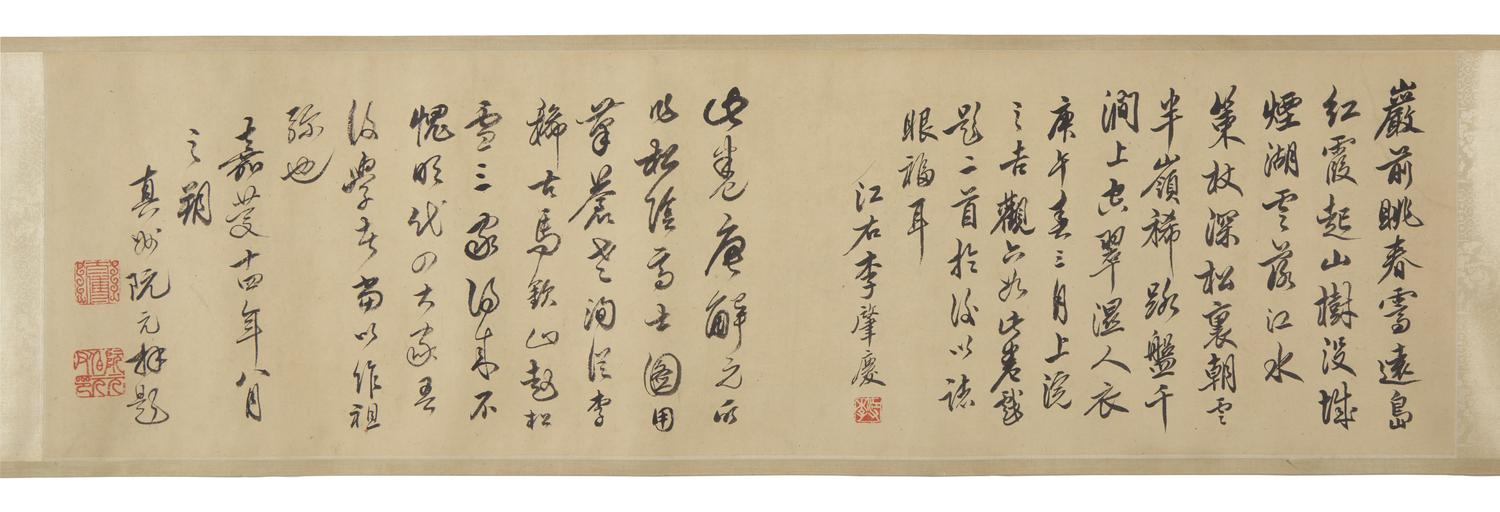 巖前眺春霽遠島
紅霞起山樹没城
煙湖雲落江水
策杖深松裏朝雲
半嶺稀路盤千
澗上空翠濕人衣
庚午春三月上浣
之吉觀六如此卷戲
題二首於後以誌
眼福耳
江右李肇慶
此卷唐解元所
作松陰高士圖用
筆蒼老洵從李
稀古馬欽山趙松
雪三家得來不
愧明代四大家吾
後學者當以作祖
孫也
嘉慶十四年八月
之朔
真州阮元拜題